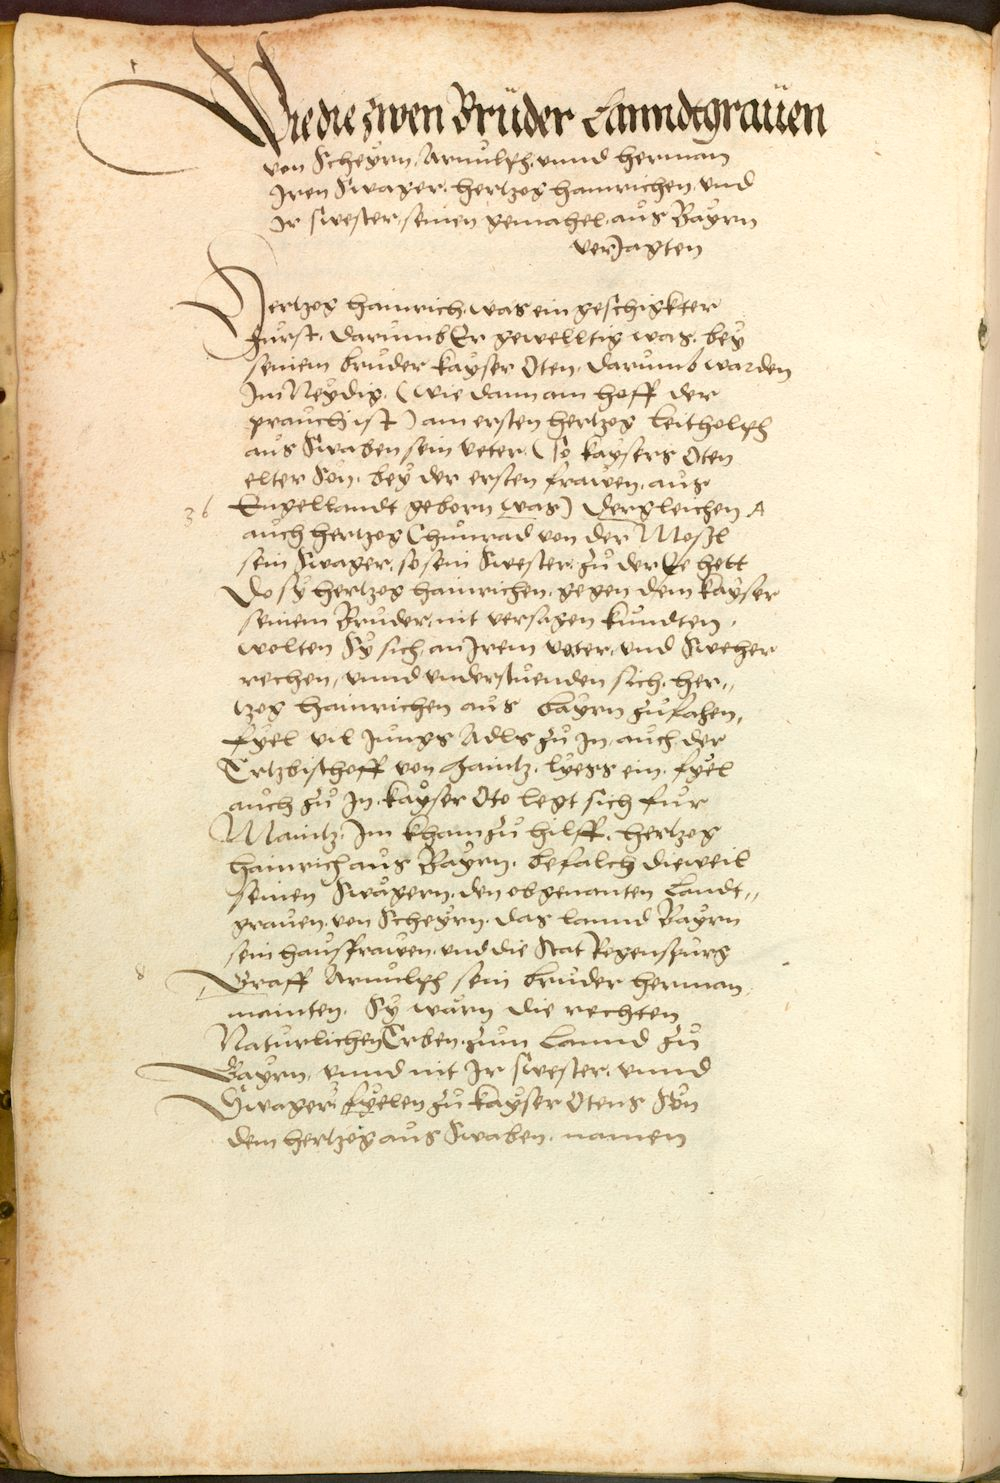 Wie die zwen Brüder Lanndtgraüen
von Scheyrn, Arnulph, vnnd Herman
Iren Swager, hertzog hainrichen, vnd
Ir swester, seinen gemahel, aus Bayrn
verJagten
Hertzog hainrich, was ein geschigkter
Furst, darumb Er gewelltig was, bey
seinem bruder kayser Oten, darumb warden
Im Neydig, (wie dann am hoff der
prauch ist) am ersten hertzog leitholph
aus Swaben sein veter, (so kaysers Oten
elter Sön, bey der ersten frawen, aus
36 Engellandt geborn was) dergleichen
auch hertzog Chunrad von der Mosßl
sein Swager, so sein Swester, zu der Ee hett
Do sy hertzog hainrichen, gegen dem kayser
seinem Bruder, nit versagen kundten,
wolten Sy sich, an Irem veter, vnd Sweher
rechen, vnnd vnderstuenden sich, her„
tzog hainrichen aus bayrn zufahen,
fyel vil Jungs Adls zu In, auch der
Ertzbischoff von Haintz, lyess ein, fyel
auch zu In, kayser Oto legt sich fur
Maintz, Im kham zu hilff, hertzog
hainrich aus Bayrn, befalch dieweil
seinen Swägern, den obgenanten Landt„
grauen, von Scheyrn, das lannd Bayrn
sein hausfrawen, vnd die Stat Regenspurg
Graff Arnulph sein bruder herman,
mainten, Sy wärn die rechten
Naturlichen Erben, zum Lannd zu
Bayrn, vnnd mit Ir swester, vnnd
Swager, fyelen zu kayser Otens Sön
dem hertzog aus Swaben, namen